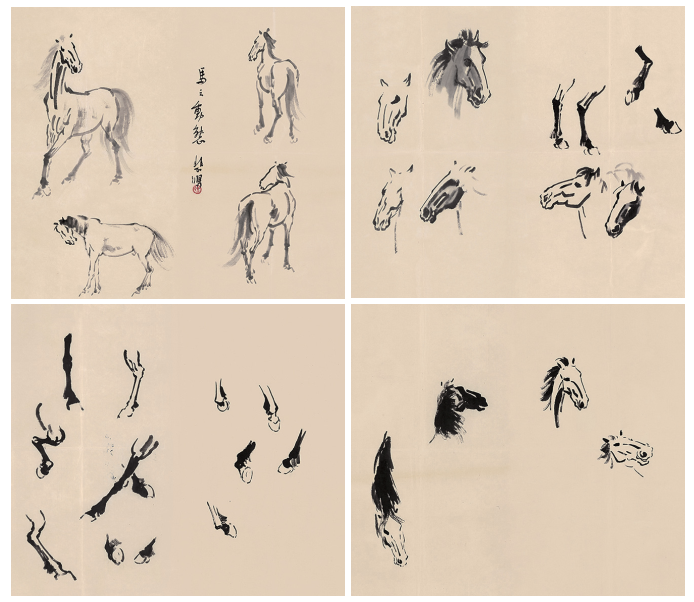 馬之動態 悲鴻